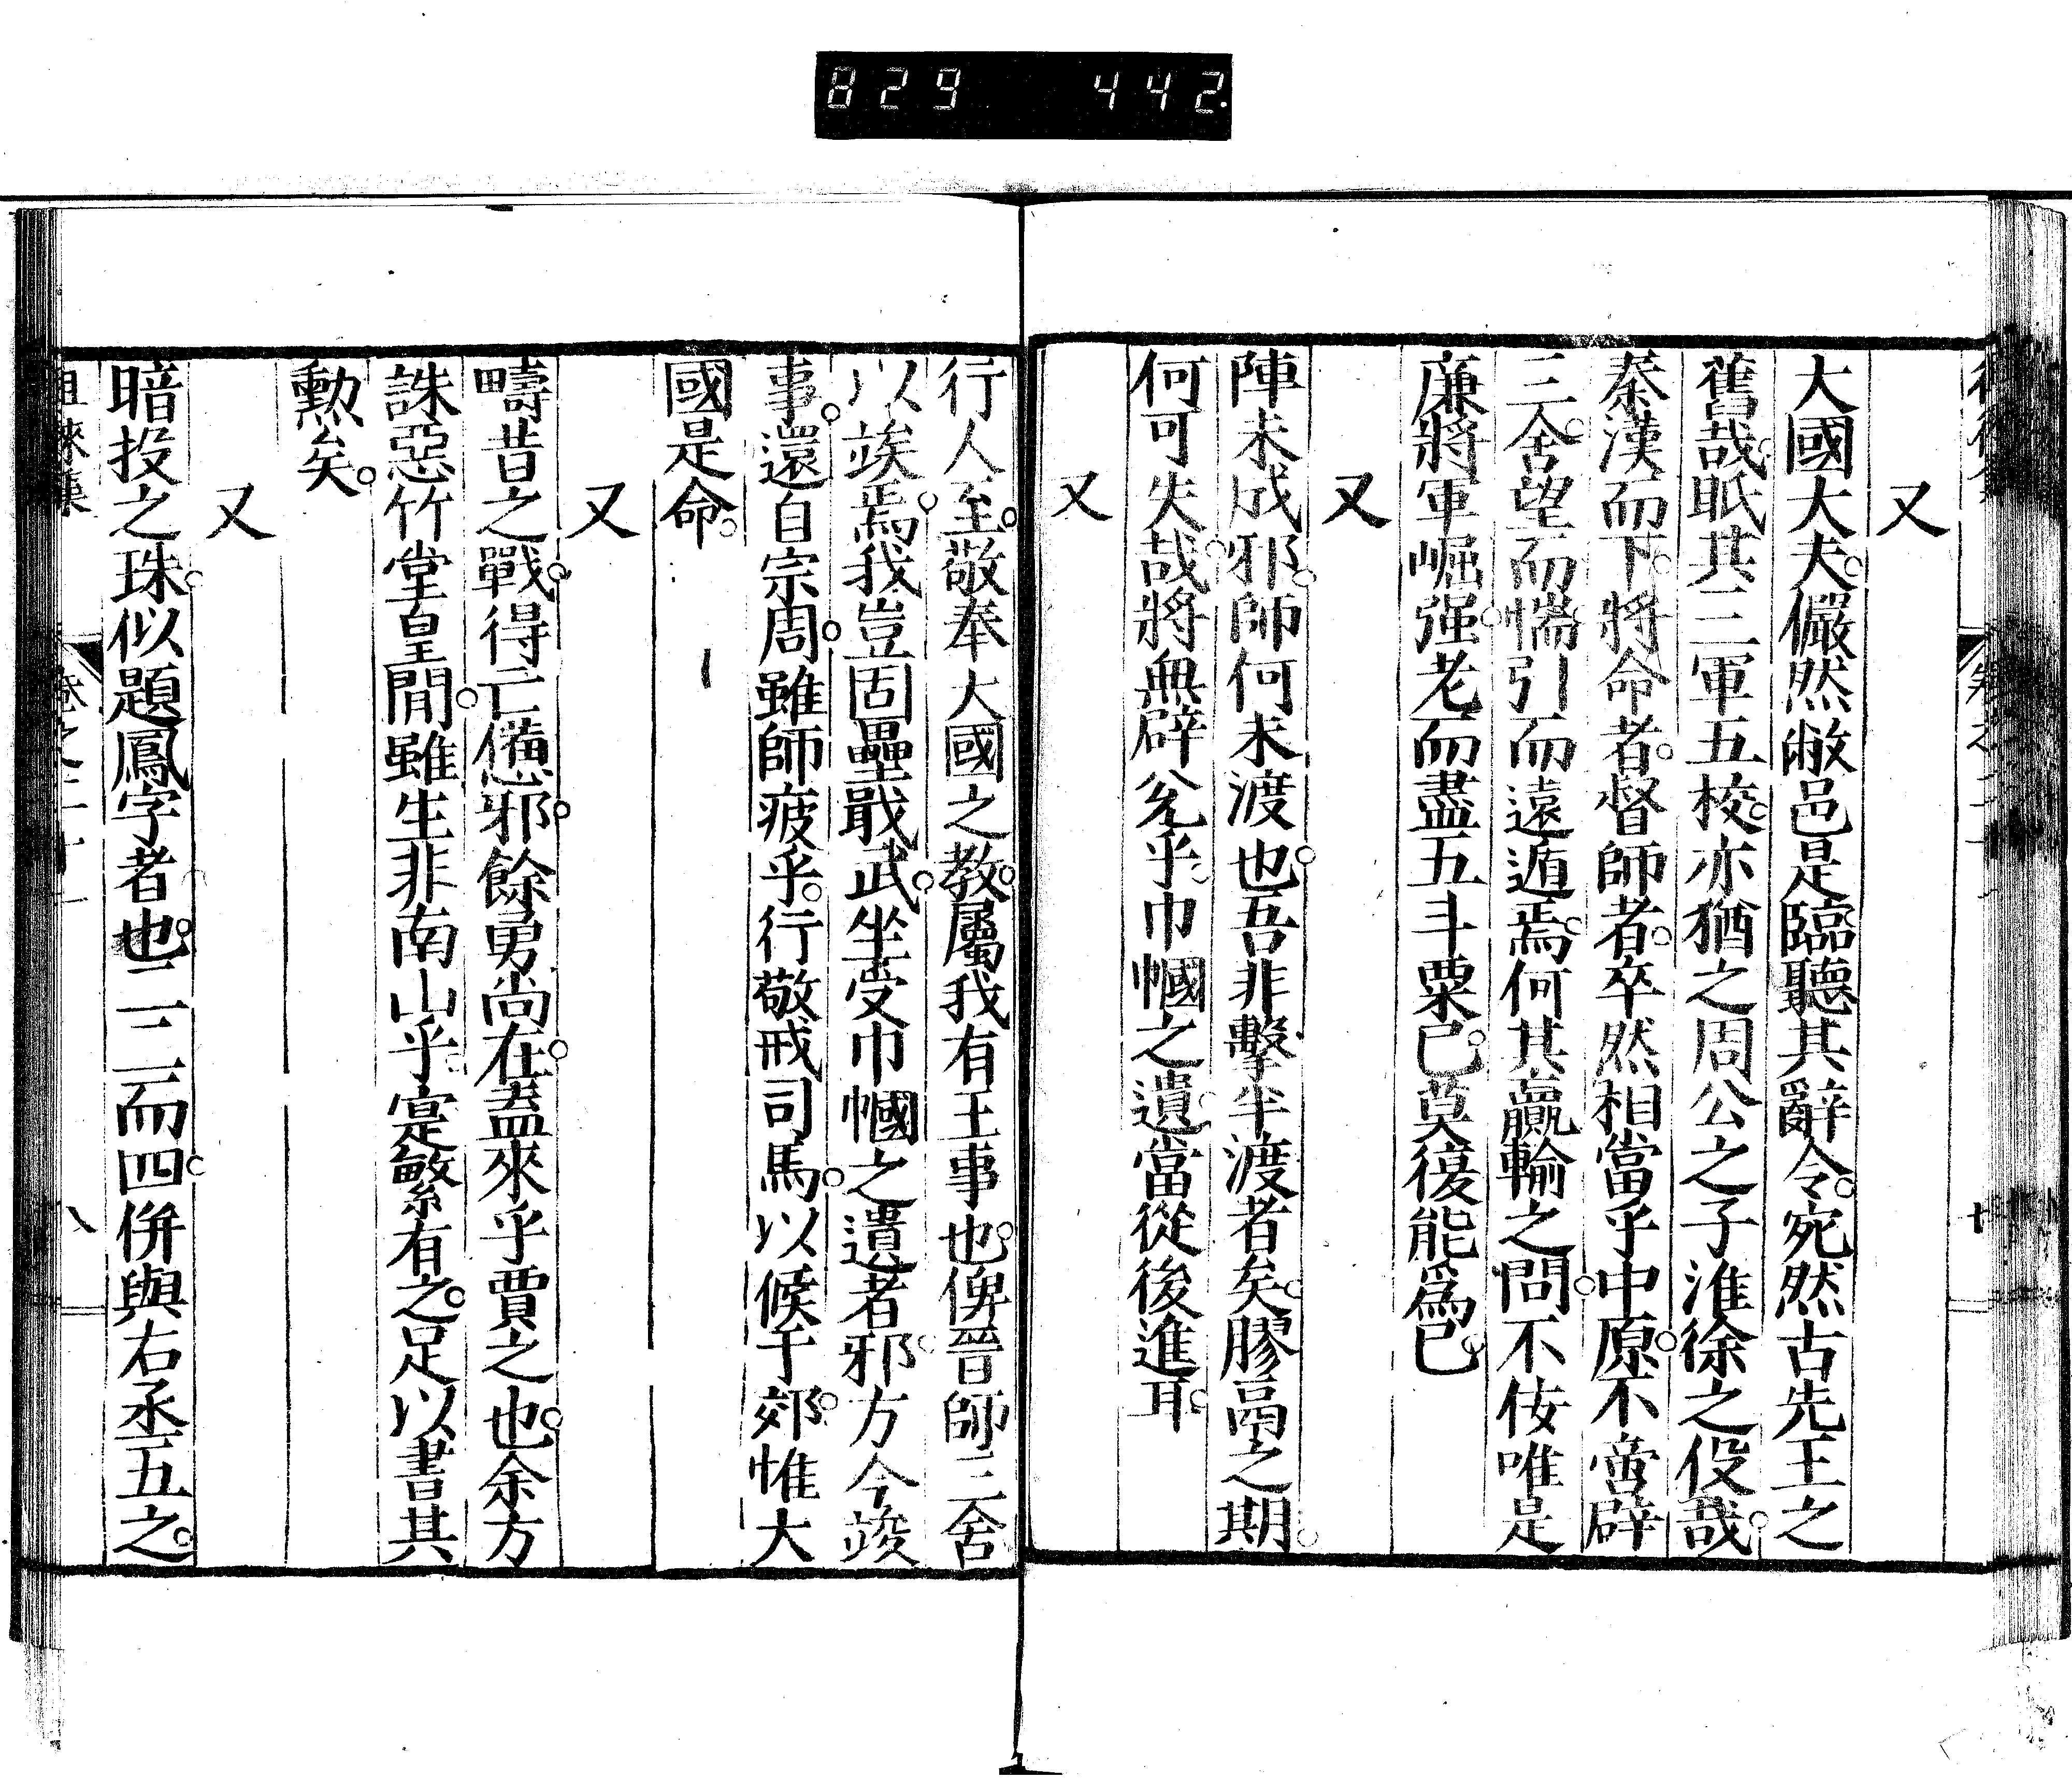 829 442
又
大國大夫。儼然敝邑是臨聽其辭令。宛然古先王之
舊哉。眡其三軍五校。亦猶之周公之子淮徐之役哉。
秦漢而下。將命者。督師者。卒然相當乎中原。不啻辟
三舍。望而惴。引而遠遁焉。何其贏輸之問。不佞唯是
廉將軍崛强。老而盡五斗粟已。莫復能爲已。
又
陣未成邪。師何未渡也。吾非擊半渡者矣。膠鬲之期。
何可失哉。將無辟兊乎。巾幗之遺。當從後進耳。
又
行人至。敬奉大國之教。屬我有王事也。俾晉師三舍
以竢焉。我豈固壘戢武。坐受巾幗之遺者邪。方今竣
事。還自宗周。雖師疲乎。行敬戒司馬。以候于郊。惟大
國是命。
又
疇昔之戰。得亡憊邪。餘勇尚在。蓋來乎賈之也。余方
誅惡竹堂皇閒。雖生非南山乎。寔繁有之。足以書其
勳矣。
又
暗投之珠。似題鳳字者也。二三而四。倂與右丞五之。
徂徠集
卷之二十一
八